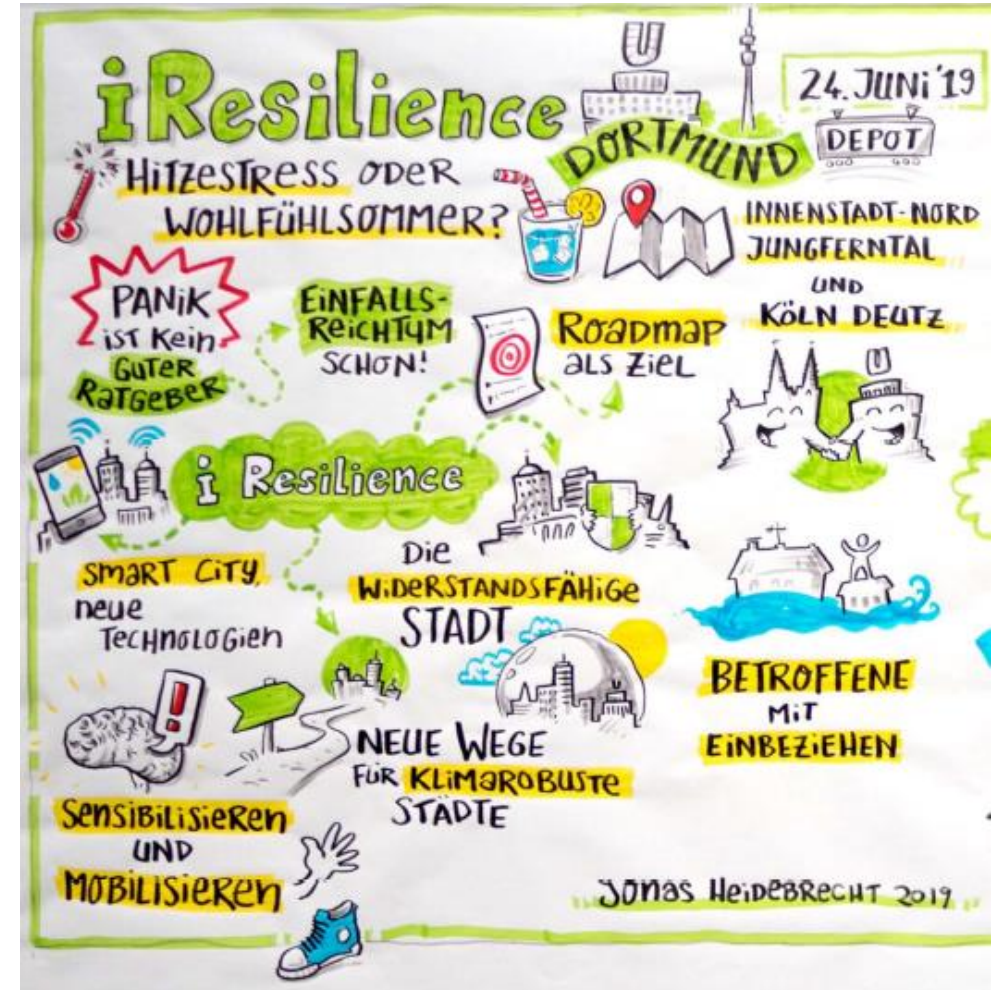 iResilience
DORTMUND
24. JUNI '19
DEPOT
HITZESTRESS ODER
WOHLFÜHLSOMMER?
INNENSTADT-NORD
JUNGFERNTAL
UND
KÖLN DEUTZ
PANIK
IST KEIN
GUTER
RATGEBER
EINFALLS-
REICHTUM
SCHON!
ROADMAP
ALS ZIEL
i Resilience
SMART CITY,
neue
TECHNOLOGIEN
Die
WIDERSTANDSFÄHIGE
STADT
BETROFFENE
MIT
EINBEZIEHEN
NEUE WEGE
FÜR KLIMAROBUSTE
STÄDTE
SENSIBILISIEREN
UND
MOBILISIEREN
JONAS HEIDEBRECHT 2019
U
U
U
!